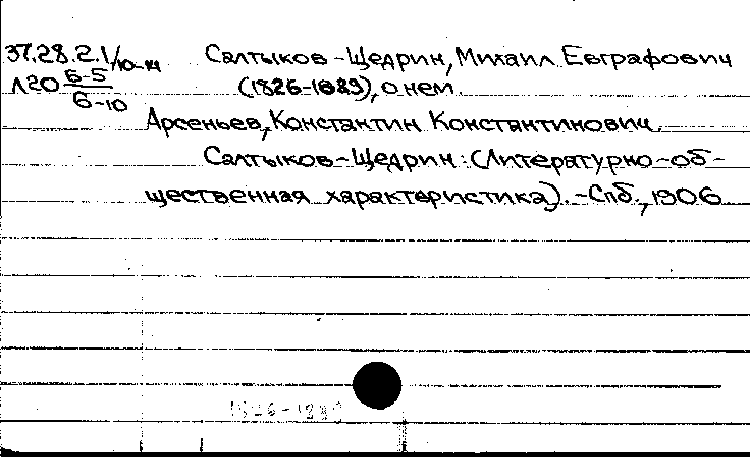 37.28.2.1/10-14 Салтыков-Щедрин, Михаил Евграфович
Л20 6-5/6-10 (1826-1889), о нем.
Арсеньев, Константин Константинович.
Салтыков-Щедрин: (Литературно-об-
щественная характеристика). - Спб., 1906